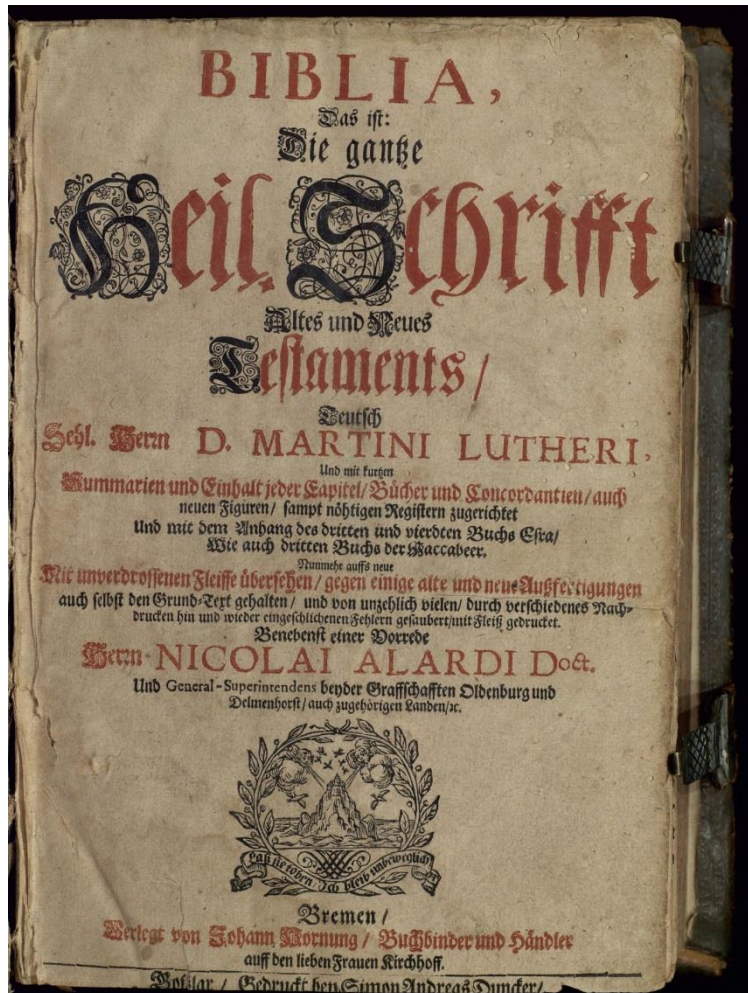 BIBLIA,
Das ist:
Die gantze
Heil. Schrifft
Altes und Neues
Testaments/
Teutsch
Sehl. Herrn D. MARTINI LUTHERI,
Und mit kurtzen
Summarien und Einhalt jeder Capitel/ Bücher und Concordantien/ auch
neuen Figuren/ sampt nöhtigen Registern zugerichtet
Und mit dem Anhang des dritten und vierdten Buchs Esra/
Wie auch dritten Buchs der Maccabeer.
Nunmehr auffs neue
Mit unverdrossenen Fleisse übersehen/ gegen einige alte und neue Außfertigungen
auch selbst den Grund-Text gehalten/ und von unzehlich vielen/ durch verschiedenes Nach-
drucken hin und wieder eingeschlichenen Fehlern gesaubert/ mit Fleiß gedrucket.
Benebenst einer Vorrede
Herrn NICOLAI ALARDI Doct.
Und General-Superintendens beyder Graffschafften Oldenburg und
Delmenhorst/ auch zugehörigen Landen/ ꝛc.
Laß sie toben Ich bleib unbeweglich
Bremen/
Verlegt von Johann Wornung/ Buchbinder und Händler
auff den lieben Frauen Kirchhoff.
Goßlar/ Gedruckt bey Simon Andreas Duncker/